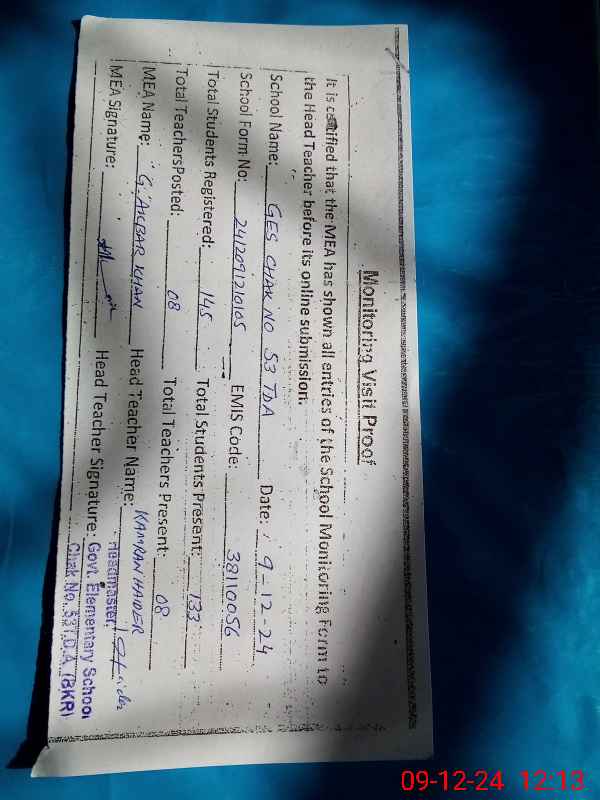 Monitoring Visit Proof
It is certified that the MEA has shown all entries of the School Monitoring Form to
the Head Teacher before its online submission.
School Name: GES CHAK NO 53 TDA Date: 9-12-24
School Form No: 2412091210105 EMIS Code: 38110056
Total Students Registered: 145 Total Students Present: 133
Total TeachersPosted: 08 Total Teachers Present: 08
MEA Name: G. AKBAR KHAN Head Teacher Name: KAMRAN HAIDER
MEA Signature: Head Teacher Signature:
Headmaster,
Govt. Elementary School
Chak No. 53 T.D.A. (BKR)
09-12-24 12:13